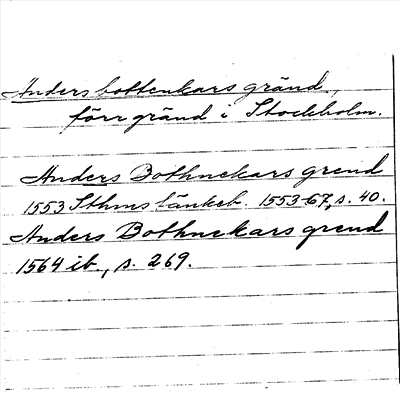 Anders bottenkars gränd,
förr gränd i Stockholm.
Anders Bothnekars grend
1553 Sthms tänkeb. 1553-67, s. 40.
Anders Bothnekars grend
1564 ib., s. 269.